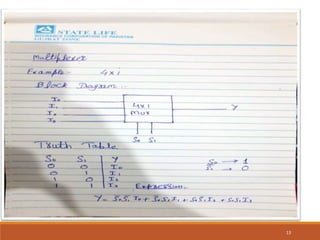 STATE LIFE
INSURANCE CORPORATION OF PAKISTAN
Multiplexer
Example:- 4x1
Block Diagram:-
I0
I1
I2
I3
4x1
MUX
Y
S0 S1
Truth Table
S0 S1 Y
0 0 I0
0 1 I1
1 0 I2
1 1 I3
S0 → 1
S1 → 0
Expression.
13